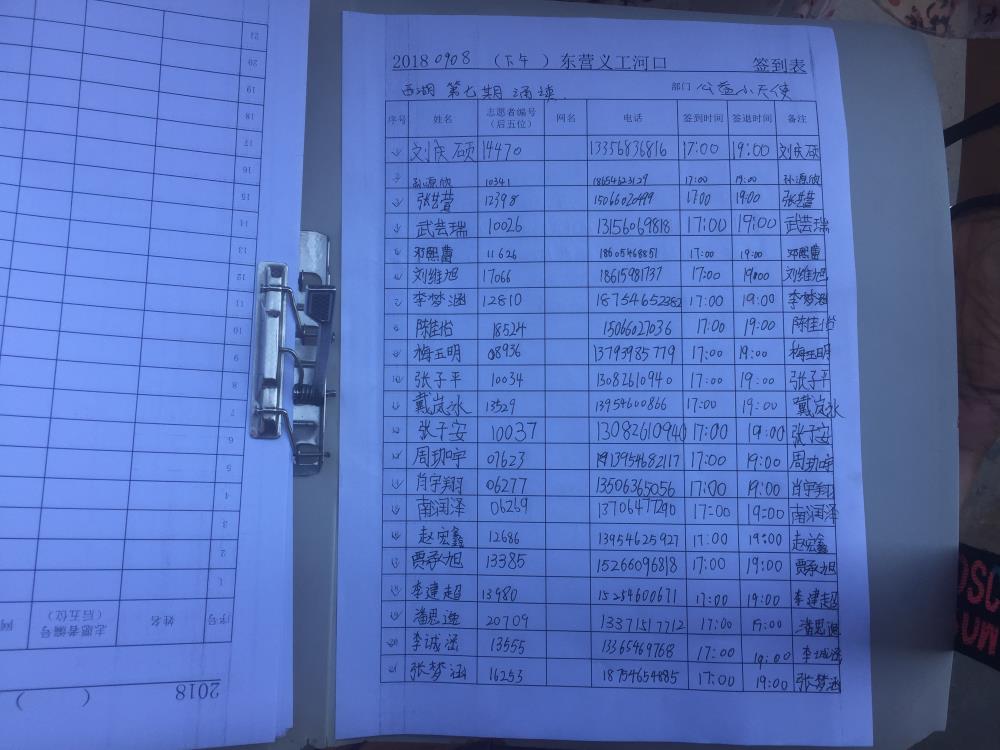 20180908 （下午）东营义工河口 签到表
西湖 第七期 诵读. 部门 公益小天使
序号 姓名 志愿者编号（后五位） 网名 电话 签到时间 签退时间 备注
1 刘庆硕 14470 13356836816 17:00 19:00 刘庆硕
2 孙源欣 10341 18654623129 17:00 19:00 孙源欣
3 张芸萱 12398 15066020499 17:00 19:00 张芸萱
4 武芸瑞 10026 13156069818 17:00 19:00 武芸瑞
5 邓熙蕾 11626 18605468851 17:00 19:00 邓熙蕾
6 刘维旭 17066 18615981737 17:00 19:00 刘维旭
7 李梦涵 12810 18754652382 17:00 19:00 李梦涵
8 陈佳怡 18524 15066027036 17:00 19:00 陈佳怡
9 梅玉明 08936 13793985779 17:00 19:00 梅玉明
10 张子平 10034 13082610940 17:00 19:00 张子平
11 戴岚冰 13529 13954600866 17:00 19:00 戴岚冰
12 张子安 10037 13082610940 17:00 19:00 张子安
13 周玏宇 07623 13954682117 17:00 19:00 周玏宇
14 肖宇翔 06277 13506365056 17:00 19:00 肖宇翔
15 南润泽 06269 13706477290 17:00 19:00 南润泽
16 赵宏鑫 12686 13954625927 17:00 19:00 赵宏鑫
17 贾承旭 13385 15266096818 17:00 19:00 贾承旭
18 李建超 13980 15254600671 17:00 19:00 李建超
19 潘思逸 20709 13371517712 17:00 19:00 潘思逸
20 李诚涵 13555 13365469768 17:00 19:00 李诚涵
21 张梦涵 16253 18754654885 17:00 19:00 张梦涵
2018 （ ）
序号 姓名 志愿者编号（后五位） 网
1
2
3
4
5
6
7
8
9
10
11
12
13
14
15
16
17
18
19
20
21